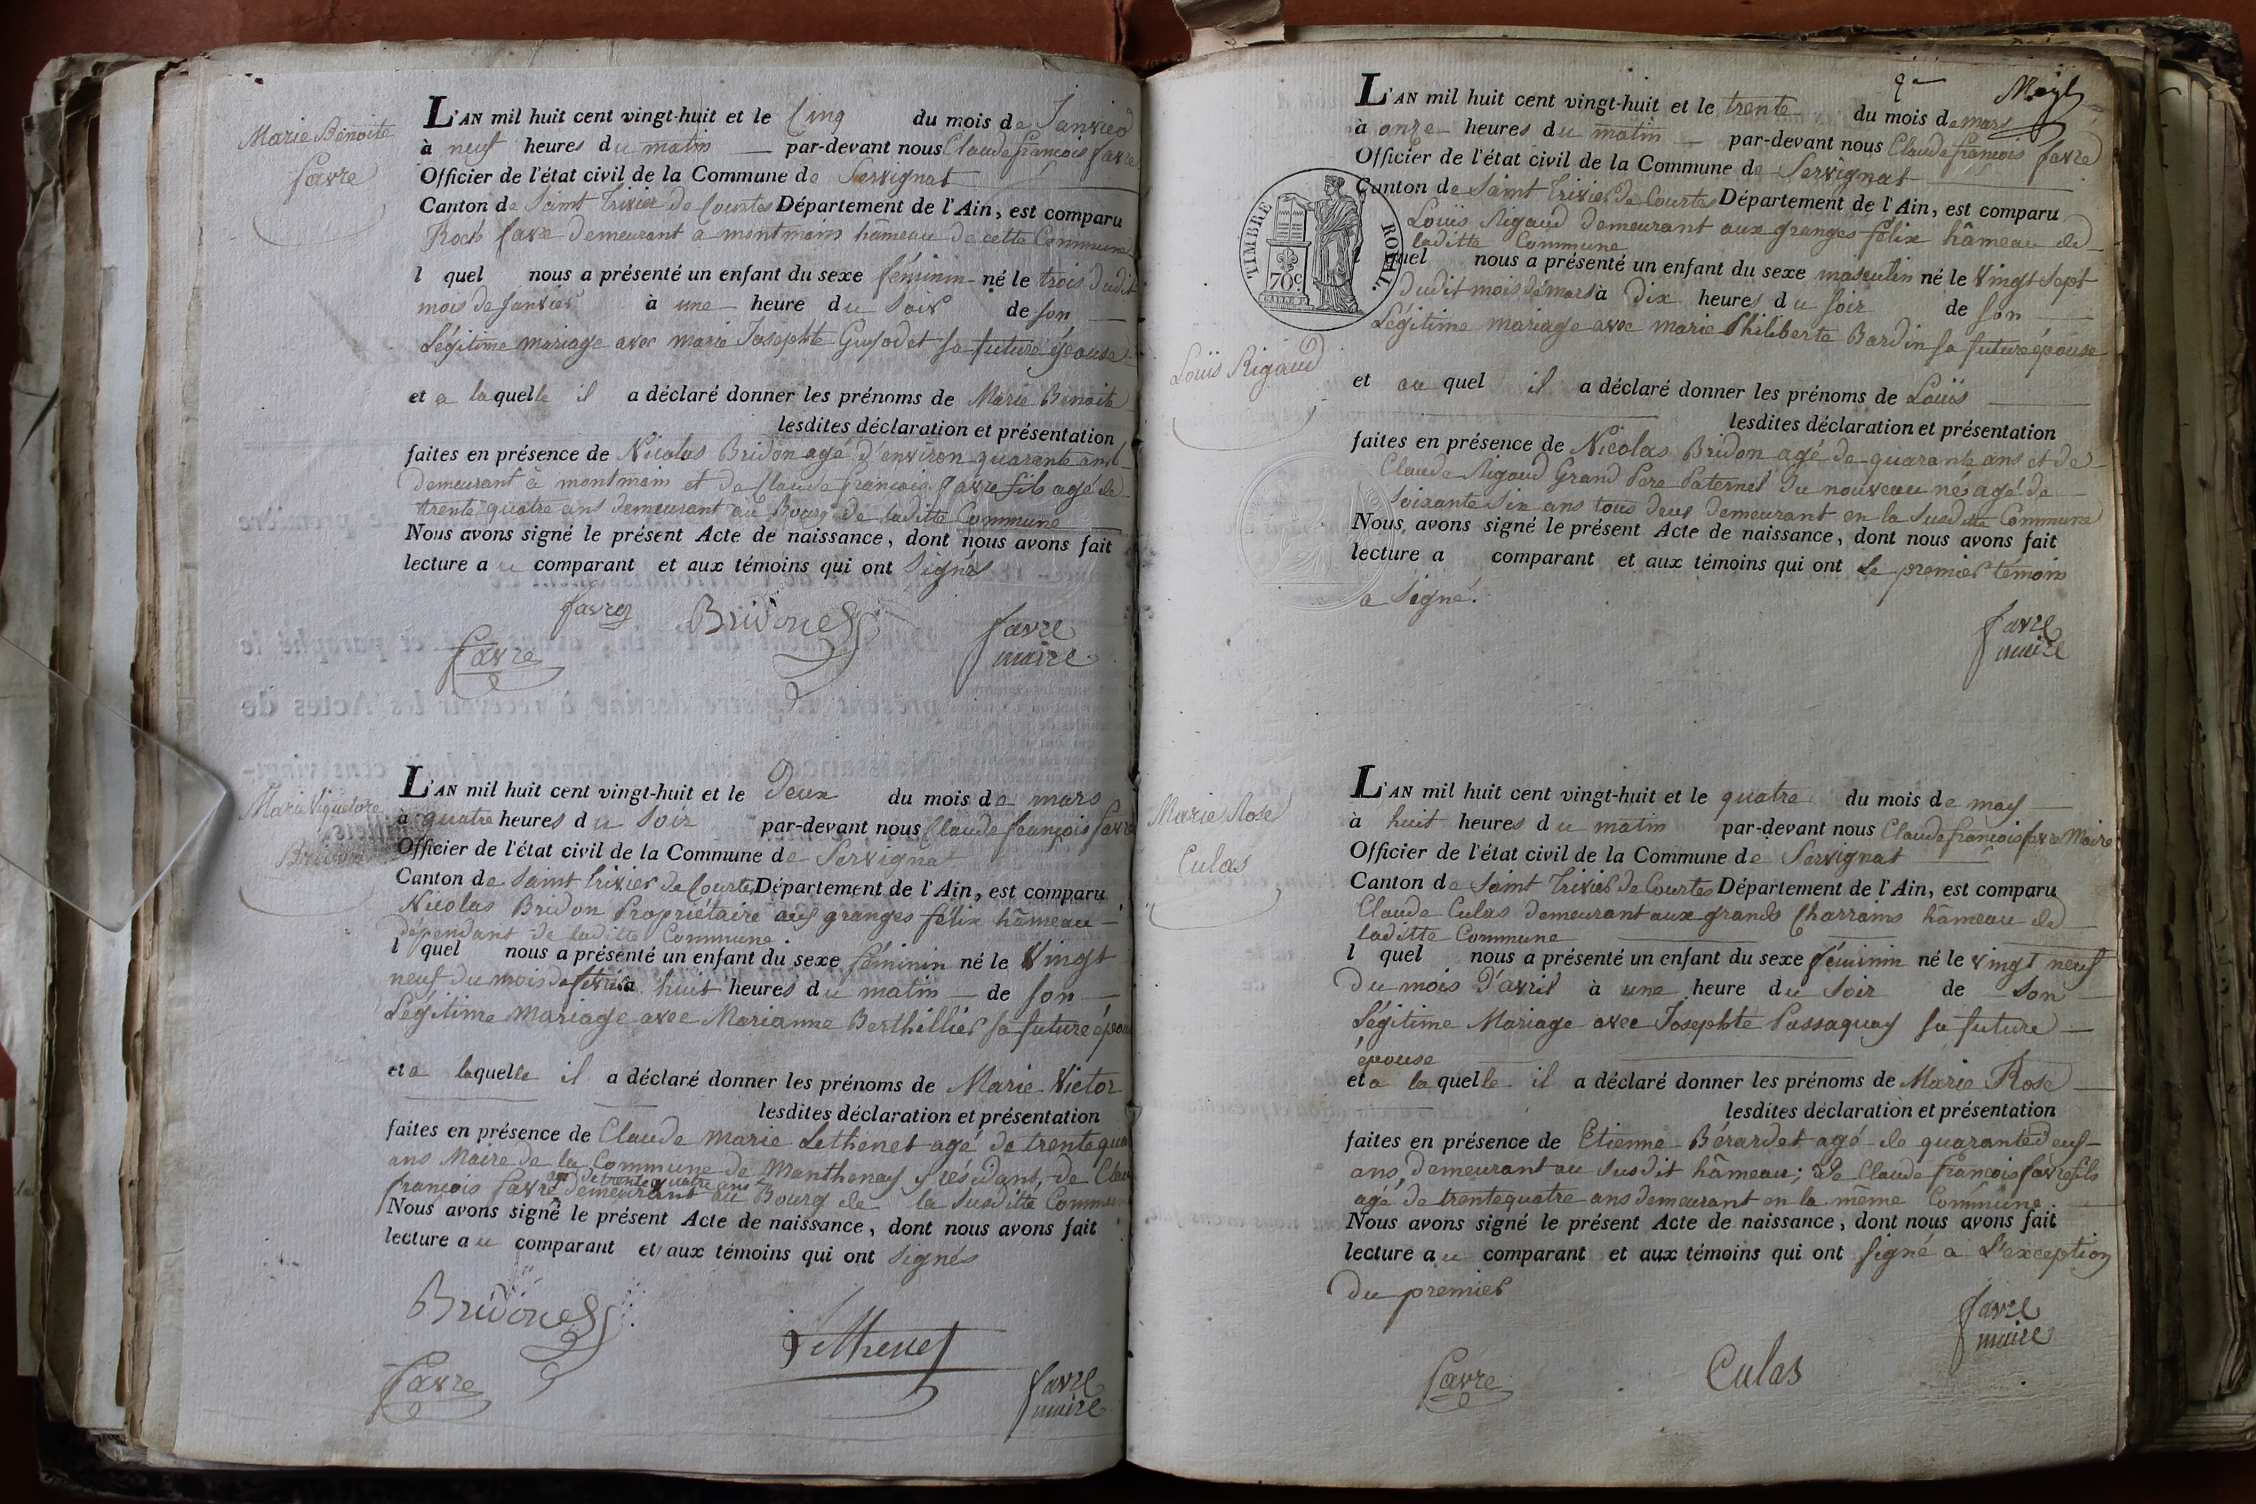 Marie Benoite
favre
L'AN mil huit cent vingt-huit et le Cinq du mois de Janvier
à neuf heures du matin par-devant nous Claude françois favre
Officier de l'état civil de la Commune de Servignat
Canton de Saint Trivier de Courtes Département de l'Ain, est comparu
Roch favre demeurant a montmain hâmeau de cette Commune
l quel nous a présenté un enfant du sexe féminin né le trois dudit
mois de Janvier à une heure du Soir de son
Légitime mariage avec marie Josephte Guyodet sa future épouse
et a laquelle il a déclaré donner les prénoms de Marie Benoite
lesdites déclaration et présentation
faites en présence de Nicolas Bridon agé d'environ quarante ans
demeurant à montmain et de Claude françois favre fils agé de
trente quatre ans demeurant au Bourg de laditte Commune
Nous avons signé le présent Acte de naissance, dont nous avons fait
lecture au comparant et aux témoins qui ont Signés
favre
Bridon
favre
maire
favre
Marie
Bridon
L'AN mil huit cent vingt-huit et le Deux du mois de mars
à quatre heures du Soir par-devant nous Claude françois favre
Officier de l'état civil de la Commune de Servignat
Canton de Saint Trivier de Courtes Département de l'Ain, est comparu
Nicolas Bridon Propriétaire aux granges félix hâmeau
dépendant de laditte Commune
l quel nous a présenté un enfant du sexe féminin né le Vingt
neuf du mois de février à huit heures du matin de son
Légitime Mariage avec Marianne Berthillier sa future épou
et a laquelle il a déclaré donner les prénoms de Marie Victor
lesdites déclaration et présentation
faites en présence de Claude Marie Lethenet agé de trente qua
ans Maire de la Commune de Manthenay y résidant, de Clau
agé de trente quatre ans
françois favre demeurant au Bourg de la Susditte Commun
Nous avons signé le présent Acte de naissance, dont nous avons fait
lecture au comparant et aux témoins qui ont Signés
Bridon
Lethenet
favre
favre
maire
2e
L'AN mil huit cent vingt-huit et le trente du mois de mars
à onze heures du matin par-devant nous Claude françois favre
Officier de l'état civil de la Commune de Servignat
Canton de Saint Trivier de Courtes Département de l'Ain, est comparu
Louïs Rigaud demeurant aux granges félix hâmeau de
laditte Commune
l quel nous a présenté un enfant du sexe masculin né le Vingt Sept
dudit mois de mars à Dix heures du Soir de son
Légitime mariage avec marie Philiberte Bardin sa future épouse
TIMBRE ROYAL.
70c
Louïs Rigaud
et au quel il a déclaré donner les prénoms de Louïs
lesdites déclaration et présentation
faites en présence de Nicolas Bridon agé de quarante ans et de
Claude Rigaud Grand Pere Paternel du nouveau né agé de
Soixante Six ans tous deux demeurant en la Susditte Commune
Nous avons signé le présent Acte de naissance, dont nous avons fait
lecture a comparant et aux témoins qui ont Le premier témoin
a Signé.
favre
maire
Marie Rose
Culas
L'AN mil huit cent vingt-huit et le quatre du mois de may
à huit heures du matin par-devant nous Claude françois favre Maire
Officier de l'état civil de la Commune de Servignat
Canton de Saint Trivier de Courtes Département de l'Ain, est comparu
Claude Culas demeurant aux grands Charrains hâmeau de
laditte Commune
l quel nous a présenté un enfant du sexe féminin né le vingt neuf
Du mois d'avril à une heure du Soir de Son
Légitime Mariage avec Josephte Passaquay sa future
épouse
et a la quelle il a déclaré donner les prénoms de Marie Rose
lesdites déclaration et présentation
faites en présence de Etienne Bérardet agé de quarante deux
ans, demeurant au Susdit hâmeau; De Claude françois favre fils
agé de trente quatre ans demeurant en la même Commune
Nous avons signé le présent Acte de naissance, dont nous avons fait
lecture au comparant et aux témoins qui ont signé a L'exception
Du premier
favre
maire
favre
Culas